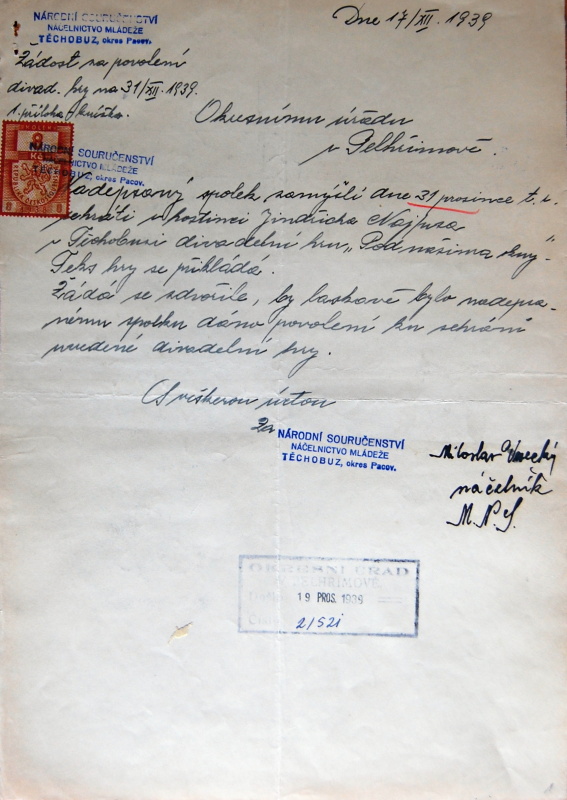 NÁRODNÍ SOURUČENSTVÍ
NÁČELNICTVO MLÁDEŽE
TĚCHOBUZ, okres Pacov.
Dne 17/XII. 1939
Žádost za povolení
divad. hry na 31/XII. 1939.
1. příloha
Okresnímu úřadu
v Pelhřimově.
KOLEK
8
NÁRODNÍ SOURUČENSTVÍ
NÁČELNICTVO MLÁDEŽE
TĚCHOBUZ, okres Pacov.
Nadepsaný spolek zamýšlí dne 31 prosince t. r.
sehráti v hostinci Jindřicha
v Těchobusi divadelní hru „Pod našima okny".
Teks hry se přikládá.
Žádá se zdvořile, by laskavě bylo nadepsa-
nému spolku dáno povolení ku sehrání
uvedené divadelní hry.
S veškerou úctou
Za
NÁRODNÍ SOURUČENSTVÍ
NÁČELNICTVO MLÁDEŽE
TĚCHOBUZ, okres Pacov.
Miloslav
náčelník
M.N.S.
OKRESNÍ ÚŘAD
V PELHŘIMOVĚ
Došlo: 19 PROS. 1939
21521